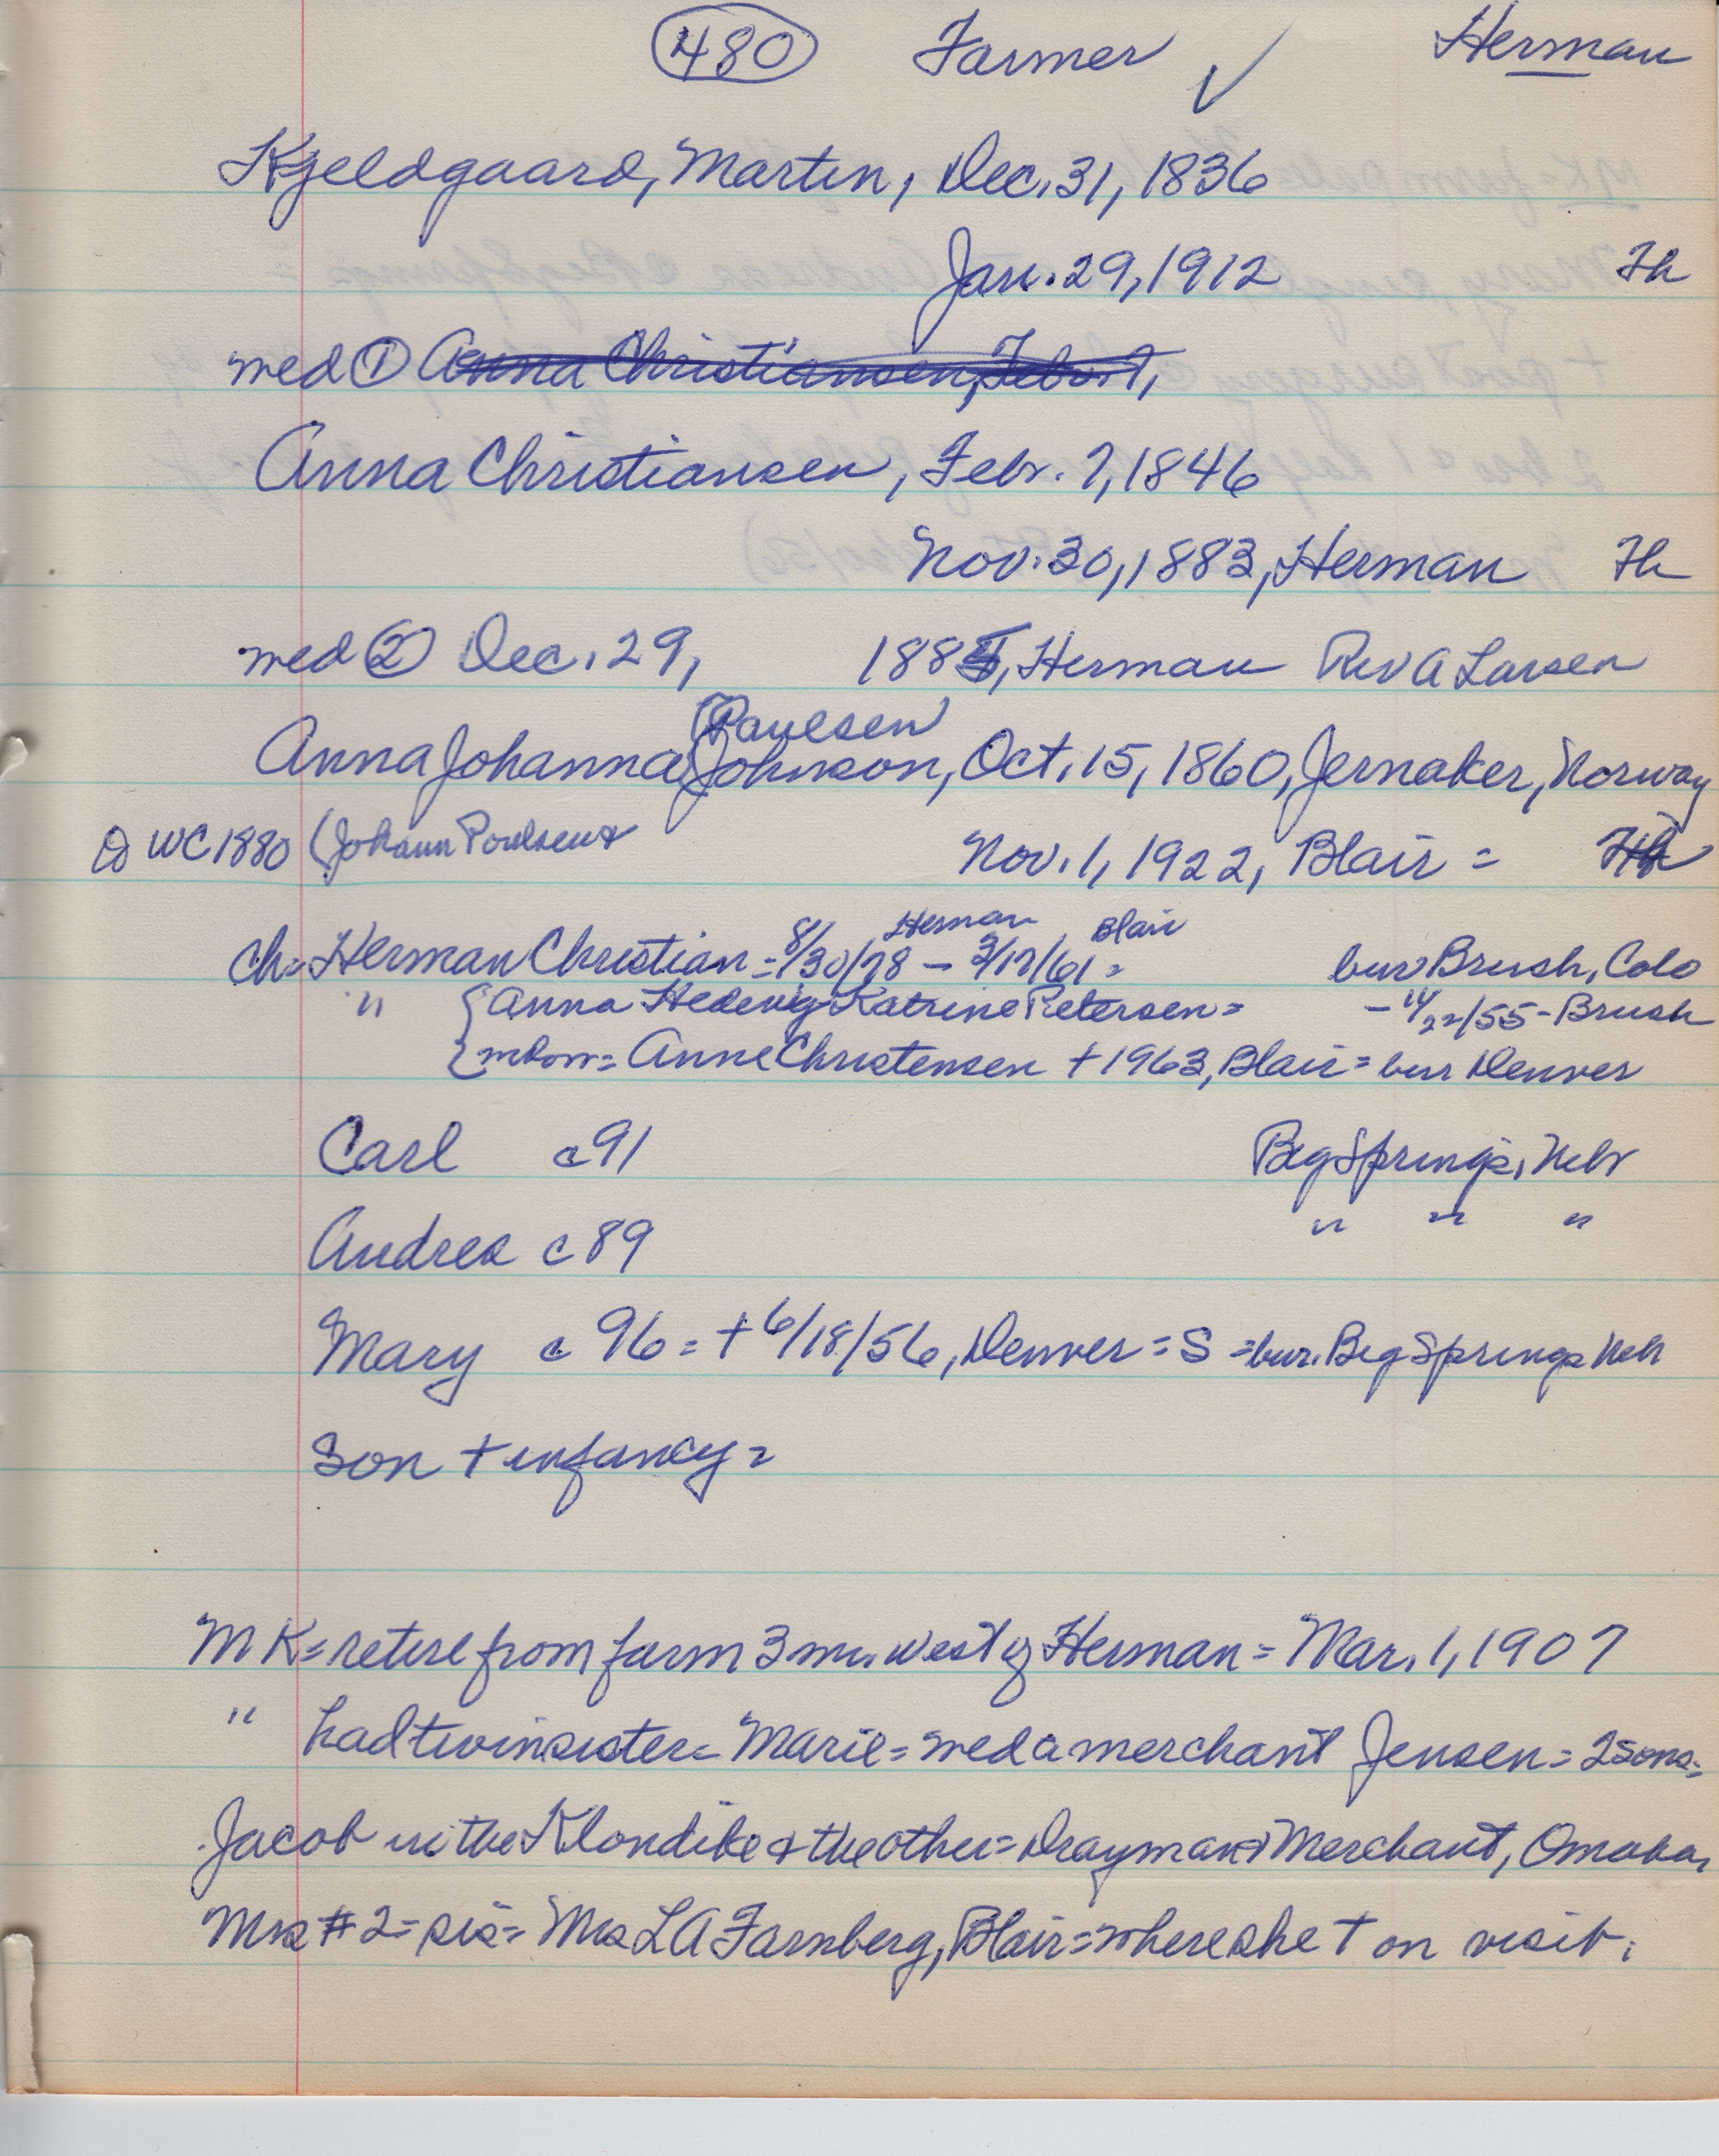 480 Farmer ✓ Herman
Kjeldgaard, Martin, Dec. 31, 1836
Jan. 29, 1912 Fh
med ① Anna Christiansen, Febr. 7,
Anna Christiansen, Febr. 7, 1846
Nov. 30, 1883, Herman Fh
med ② Dec. 29, 188, Herman Rev A Larsen
(Paulsen)
Anna Johanna Johnson, Oct. 15, 1860, Jernaker, Norway
WC 1880 (Johann Poulsen
Nov. 1, 1922, Blair =
Herman Blair
ch = Herman Christian = 8/30/78 – 3/17/61 = bur Brush, Colo
" { Anna Hedevig Katrine Petersen = – 11/22/55 – Brush
{ = Anne Christensen + 1963, Blair = bur Denver
Carl c 91 Big Springs, Nebr
Andrea c 89 " " "
Mary c 96 = + 6/18/56, Denver = S = bur. Big Springs Neb
Son + infancy =
MK = retire from farm 3 mi. west of Herman = Mar. 1, 1907
" had twin sister = Marie = med a merchant Jensen = 2 sons =
Jacob in the Klondike & the other = Drayman & Merchant, Omaha,
Mrs #2 = sis = Mrs L A Farnberg, Blair = where she + on visit.